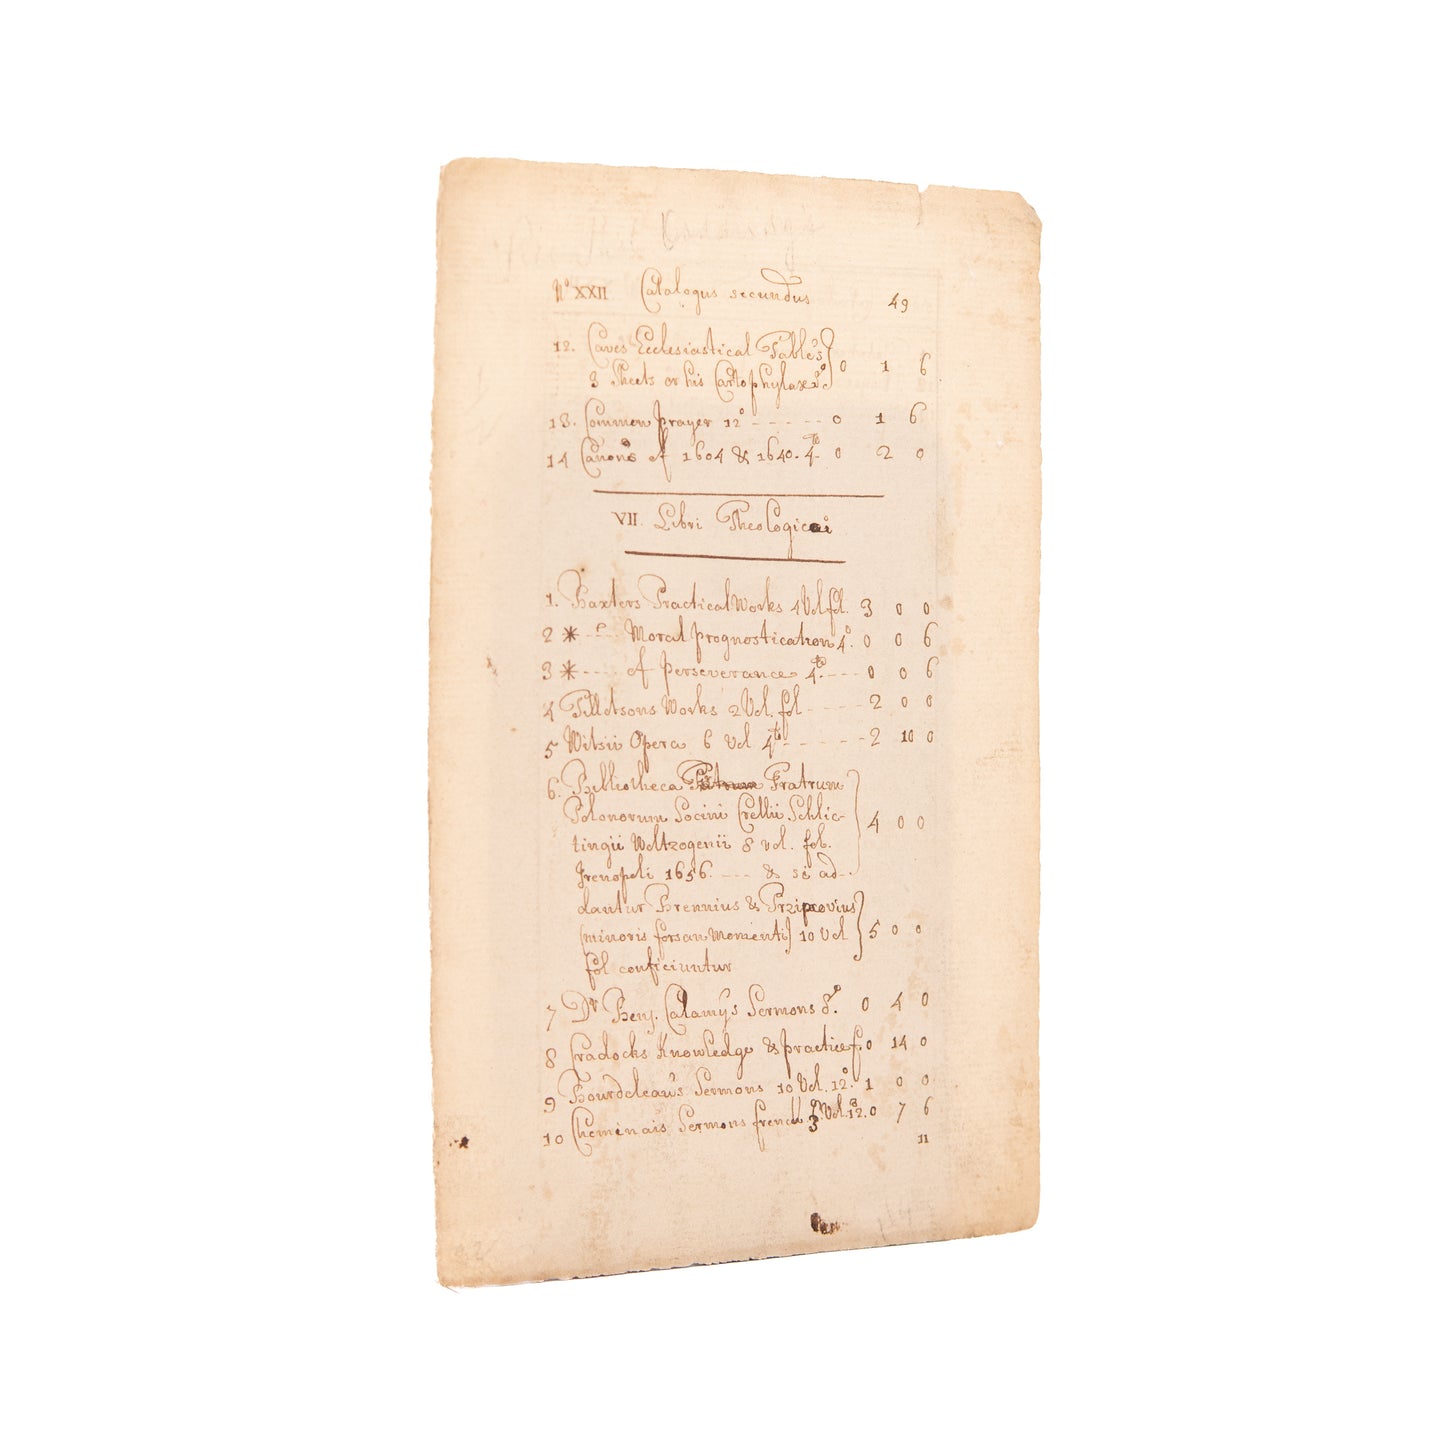 No XXII Catalogus secundus 49
12. Caves Ecclesiastical Tables}
3 Sheets or his Cartophylax 8o} 0 1 6
13. Common prayer 12o - - - - - 0 1 6
14 Canons of 1604 & 1640. 4to 0 2 0
VII. Libri Theologici
1. Baxters Practical Works 4 Vol fol. 3 0 0
2 * - - - Moral prognostication 4o. 0 0 6
3 * - - - - of perseverance 4to. - - - 0 0 6
4 Tillotsons Works 2 Vol. fol - - - - 2 0 0
5 Witsii Opera 6 Vol 4to - - - - - - 2 10 0
6. Bibliotheca Patrum Fratrum
Polonorum Socini Crellii Schlic-
tingii Woltzogenii 8 vol. fol. } 4 0 0
Irenopoli 1656. - - - & si ad-
dantur Brennius & Przipcovius
(minoris forsan Momenti) 10 Vol } 5 0 0
fol conficiuntur
7 Dr Benj. Calamys Sermons 8o. 0 4 0
8 Cradocks Knowledge & practice f. 0 14 0
9 Bourdeleau's Sermons 10 Vol. 12o. 1 0 0
10 Cheminais Sermons french 3 Vol. 12. 0 7 6
11